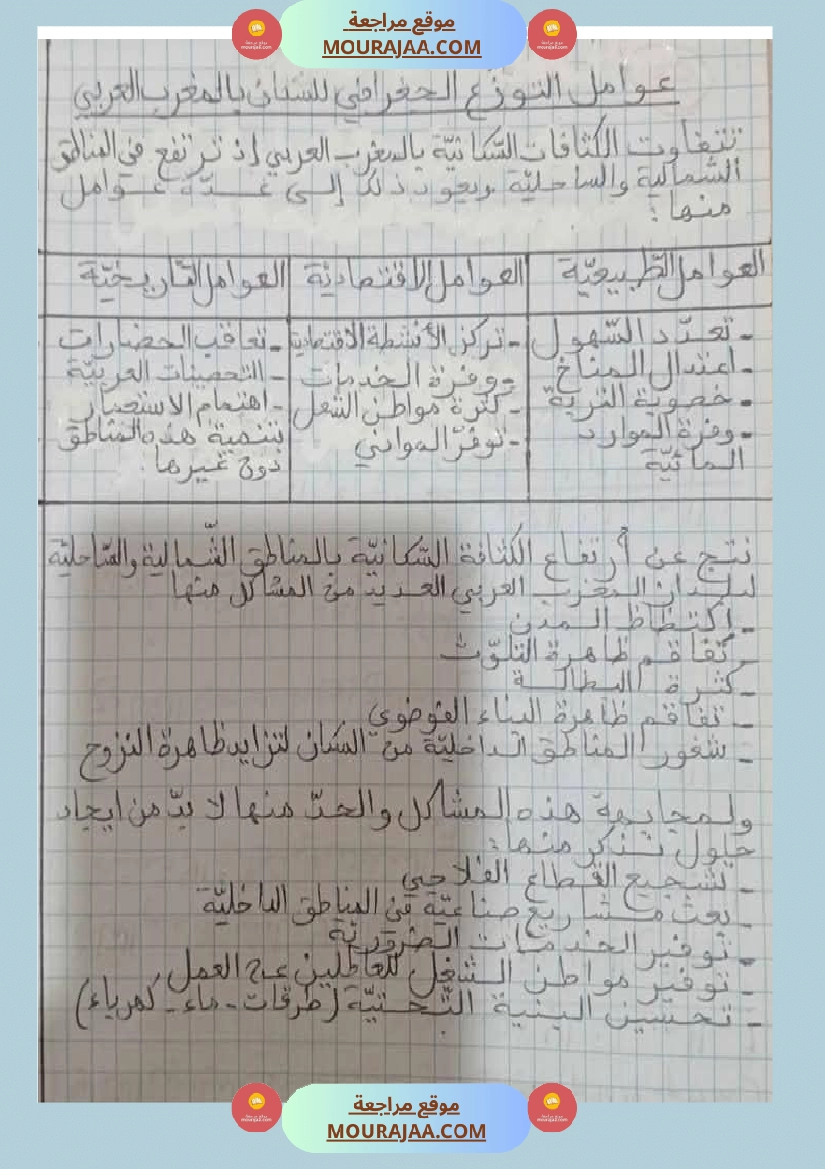 موقع مراجعة
MOURAJAA.COM
عوامل التوزع الجغرافي للسكان بالمغرب العربي
تتفاوت الكثافات السّكانيّة بالمغرب العربي إذ ترتفع في المناطق
الشمالية والساحليّة ويعود ذلك إلى عدّة عوامل
منها:
العوامل الطّبيعيّة
- تعدّد السّهول
- اعتدال المناخ
- خصوبة التربة
- وفرة الموارد
المائيّة
العوامل الاقتصاديّة
- تركز الأنشطة الاقتصادية
- وفرة الخدمات
- كثرة مواطن الشغل
- توفّر الموانئ
العوامل التّاريخيّة
- تعاقب الحضارات
- التحصينات العربيّة
- اهتمام الاستعمار
بتنمية هذه المناطق
دون غيرها.
نتج عن أرتفاع الكثافة السّكانيّة بالمناطق الشّمالية والسّاحليّة
لبلدان المغرب العربي العديد من المشاكل منها
- اكتظاظ المدن
- تفاقم ظاهرة التلوّث
- كثرة البطالة
- تفاقم ظاهرة البناء الفوضوي
- شغور المناطق الداخليّة من السكان لتزايد ظاهرة النزوح
ولمجابهة هذه المشاكل والحدّ منها لا بدّ من ايجاد
حلول نذكر منها:
- تشجيع القطاع الفلاحي
- بعث مشاريع صناعيّة في المناطق الداخليّة
- توفير الخدمات الضروريّة
- توفير مواطن الشغل للعاطلين عن العمل
- تحسين البنية التّحتيّة (طرقات - ماء - كهرباء)
موقع مراجعة
MOURAJAA.COM